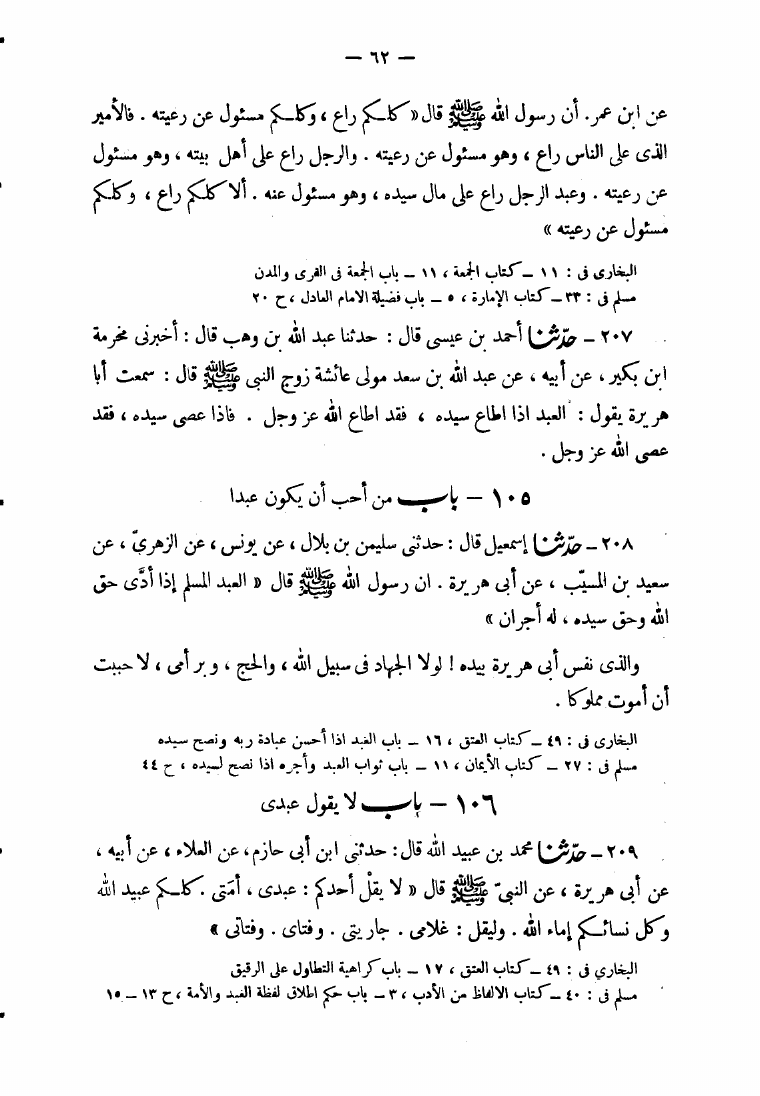 — ٦٢ —
عن ابن عمر. أن رسول الله ﷺ قال « كلكم راع ، وكلكم مسئول عن رعيته . فالأمير
الذى على الناس راع ، وهو مسئول عن رعيته . والرجل راع على أهل بيته ، وهو مسئول
عن رعيته . وعبد الرجل راع على مال سيده ، وهو مسئول عنه . ألا كلكم راع ، وكلكم
مسئول عن رعيته »
البخارى فى : ١١ — كتاب الجمعة ، ١١ — باب الجمعة فى القرى والمدن
مسلم فى : ٣٣ — كتاب الإمارة ، ٥ — باب فضيلة الامام العادل ، ح ٢٠
٢٠٧ — حدّثنا أحمد بن عيسى قال : حدثنا عبد الله بن وهب قال : أخبرنى مخرمة
ابن بكير ، عن أبيه ، عن عبد الله بن سعد مولى عائشة زوج النبى ﷺ قال : سمعت أبا
هريرة يقول : العبد اذا اطاع سيده ، فقد اطاع الله عز وجل . فاذا عصى سيده ، فقد
عصى الله عز وجل .
١٠٥ — باب من أحب أن يكون عبدا
٢٠٨ — حدّثنا إسمعيل قال : حدثنى سليمن بن بلال ، عن يونس ، عن الزهرىّ ، عن
سعيد بن المسيّب ، عن أبى هريرة . ان رسول الله ﷺ قال « العبد المسلم إذا أدَّى حق
الله وحق سيده ، له أجران »
والذى نفس أبى هريرة بيده ! لولا الجهاد فى سبيل الله ، والحج ، وبر أمى ، لاحببت
أن أموت مملوكا .
البخارى فى : ٤٩ — كتاب العتق ، ١٦ — باب العبد اذا أحسن عبادة ربه ونصح سيده
مسلم فى : ٢٧ — كتاب الأيمان ، ١١ — باب ثواب العبد وأجره اذا نصح لسيده ، ح ٤٤
١٠٦ — باب لا يقول عبدى
٢٠٩ — حدّثنا محمد بن عبيد الله قال : حدثنى ابن أبى حازم ، عن العلاء ، عن أبيه ،
عن أبى هريرة ، عن النبىّ ﷺ قال « لا يقلْ أحدكم : عبدى ، أمَتى . كلكم عبيد الله
وكل نسائكم إماء الله . وليقل : غلامى . جاريتى . وفتاى . وفتاتى »
البخاري فى : ٤٩ — كتاب العتق ، ١٧ — باب كراهية التطاول على الرقيق
مسلم فى : ٤٠ — كتاب الالفاظ من الأدب ، ٣ — باب حكم اطلاق لفظة العبد والأمة ، ح ١٣ — ١٥